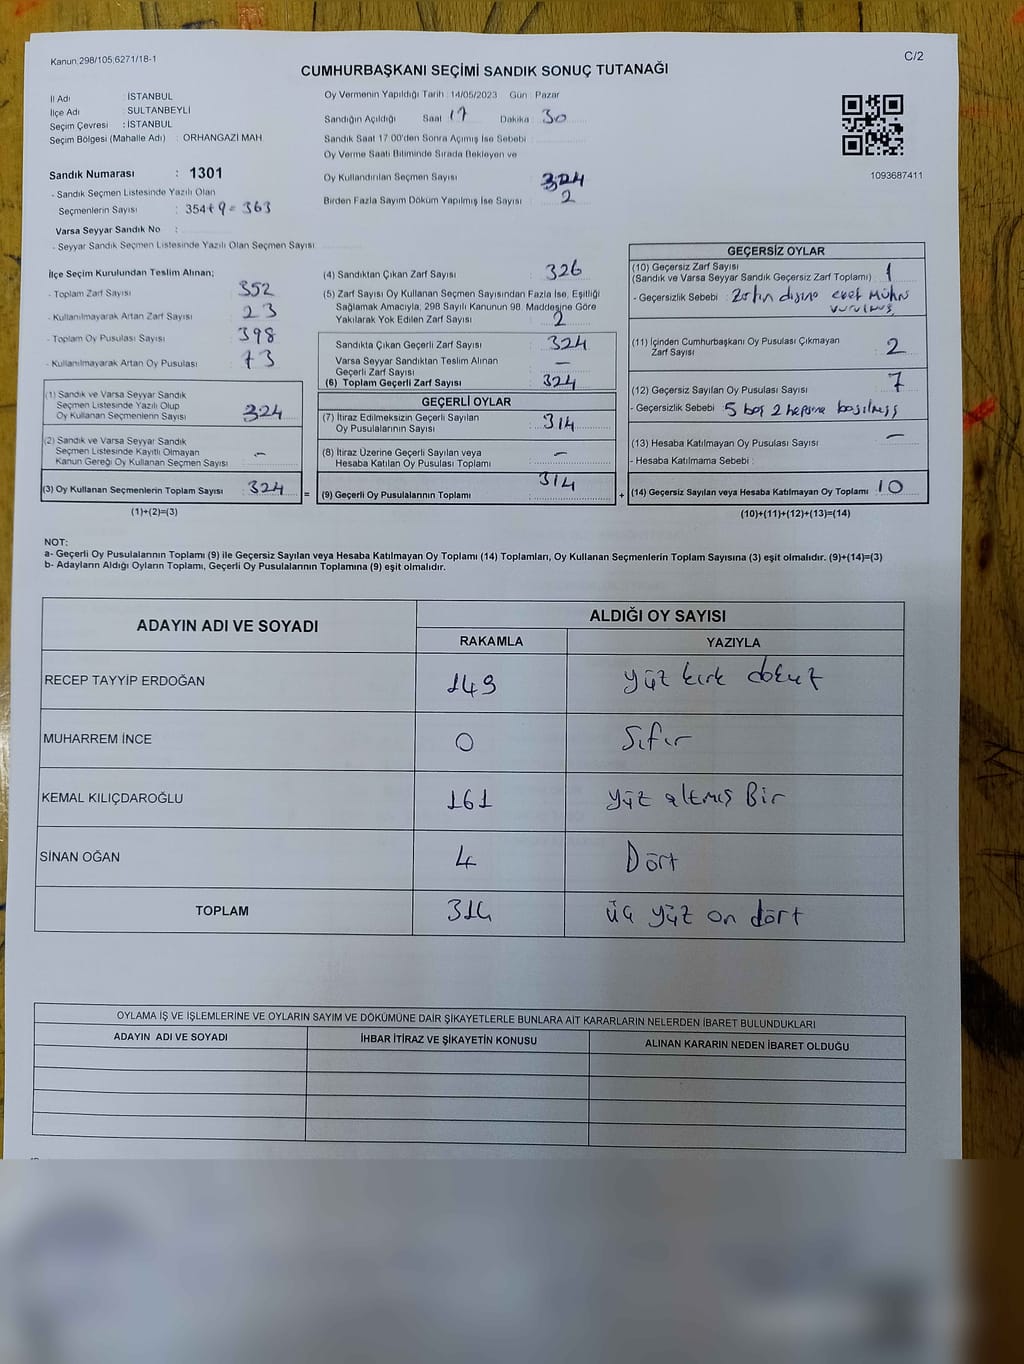 Kanun;298/105;6271/18-1
C/2
CUMHURBAŞKANI SEÇİMİ SANDIK SONUÇ TUTANAĞI
İl Adı : İSTANBUL
İlçe Adı : SULTANBEYLİ
Seçim Çevresi : İSTANBUL
Seçim Bölgesi (Mahalle Adı) : ORHANGAZİ MAH
Sandık Numarası : 1301
- Sandık Seçmen Listesinde Yazılı Olan
Seçmenlerin Sayısı : 354+9= 363
Varsa Seyyar Sandık No :
- Seyyar Sandık Seçmen Listesinde Yazılı Olan Seçmen Sayısı:
Oy Vermenin Yapıldığı Tarih : 14/05/2023 Gün : Pazar
Sandığın Açıldığı Saat 17 Dakika : 30
Sandık Saat 17:00'den Sonra Açımış İse Sebebi :
Oy Verme Saati Bitiminde Sırada Bekleyen ve
Oy Kullandırılan Seçmen Sayısı : 324
Birden Fazla Sayım Döküm Yapılmış İse Sayısı : 2
1093687411
İlçe Seçim Kurulundan Teslim Alınan;
- Toplam Zarf Sayısı : 352
- Kullanılmayarak Artan Zarf Sayısı : 23
- Toplam Oy Pusulası Sayısı : 398
- Kullanılmayarak Artan Oy Pusulası : 73
(1) Sandık ve Varsa Seyyar Sandık
Seçmen Listesinde Yazılı Olup
Oy Kullanan Seçmenlerin Sayısı : 324
(2) Sandık ve Varsa Seyyar Sandık
Seçmen Listesinde Kayıtlı Olmayan
Kanun Gereği Oy Kullanan Seçmen Sayısı : -
(3) Oy Kullanan Seçmenlerin Toplam Sayısı : 324
(1)+(2)=(3)
(4) Sandıktan Çıkan Zarf Sayısı : 326
(5) Zarf Sayısı Oy Kullanan Seçmen Sayısından Fazla İse, Eşitliği
Sağlamak Amacıyla, 298 Sayılı Kanunun 98. Maddesine Göre
Yakılarak Yok Edilen Zarf Sayısı : 2
Sandıkta Çıkan Geçerli Zarf Sayısı : 324
Varsa Seyyar Sandıktan Teslim Alınan
Geçerli Zarf Sayısı : -
(6) Toplam Geçerli Zarf Sayısı : 324
GEÇERLİ OYLAR
(7) İtiraz Edilmeksizin Geçerli Sayılan
Oy Pusulalarının Sayısı : 314
(8) İtiraz Üzerine Geçerli Sayılan veya
Hesaba Katılan Oy Pusulası Toplamı : -
= (9) Geçerli Oy Pusulalarının Toplamı : 314
GEÇERSİZ OYLAR
(10) Geçersiz Zarf Sayısı
(Sandık ve Varsa Seyyar Sandık Geçersiz Zarf Toplamı) : 1
- Geçersizlik Sebebi : Zarfın dışına evet Mührü
vurulmuş
(11) İçinden Cumhurbaşkanı Oy Pusulası Çıkmayan
Zarf Sayısı : 2
(12) Geçersiz Sayılan Oy Pusulası Sayısı : 7
- Geçersizlik Sebebi : 5 boş 2 hepsine basılmış
(13) Hesaba Katılmayan Oy Pusulası Sayısı : -
- Hesaba Katılmama Sebebi :
+ (14) Geçersiz Sayılan veya Hesaba Katılmayan Oy Toplamı : 10
(10)+(11)+(12)+(13)=(14)
NOT:
a- Geçerli Oy Pusulalarının Toplamı (9) ile Geçersiz Sayılan veya Hesaba Katılmayan Oy Toplamı (14) Toplamları, Oy Kullanan Seçmenlerin Toplam Sayısına (3) eşit olmalıdır. (9)+(14)=(3)
b- Adayların Aldığı Oyların Toplamı, Geçerli Oy Pusulalarının Toplamına (9) eşit olmalıdır.
ADAYIN ADI VE SOYADI
ALDIĞI OY SAYISI
RAKAMLA YAZIYLA
RECEP TAYYİP ERDOĞAN 149 yüz kırk dokuz
MUHARREM İNCE 0 Sıfır
KEMAL KILIÇDAROĞLU 161 yüz altmış Bir
SİNAN OĞAN 4 Dört
TOPLAM 314 üç yüz on dört
OYLAMA İŞ VE İŞLEMLERİNE VE OYLARIN SAYIM VE DÖKÜMÜNE DAİR ŞİKAYETLERLE BUNLARA AİT KARARLARIN NELERDEN İBARET BULUNDUKLARI
ADAYIN ADI VE SOYADI İHBAR İTİRAZ VE ŞİKAYETİN KONUSU ALINAN KARARIN NEDEN İBARET OLDUĞU